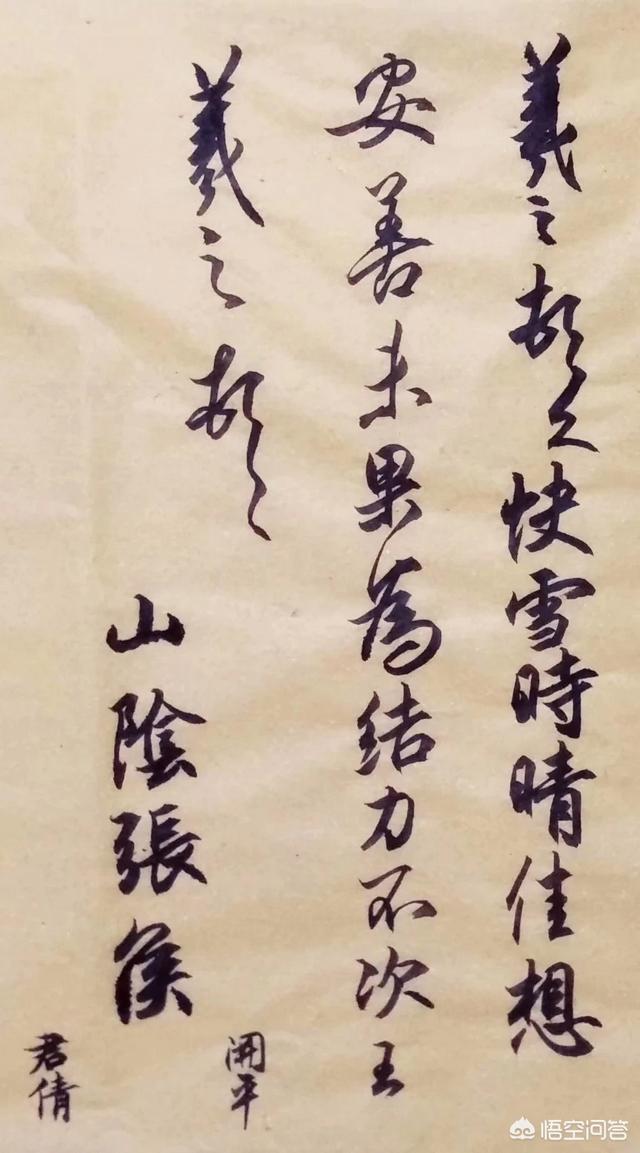 羲之頓首快雪時晴佳想
安善未果為結力不次王
羲之頓首
山陰張侯
開平
君倩
悟空问答